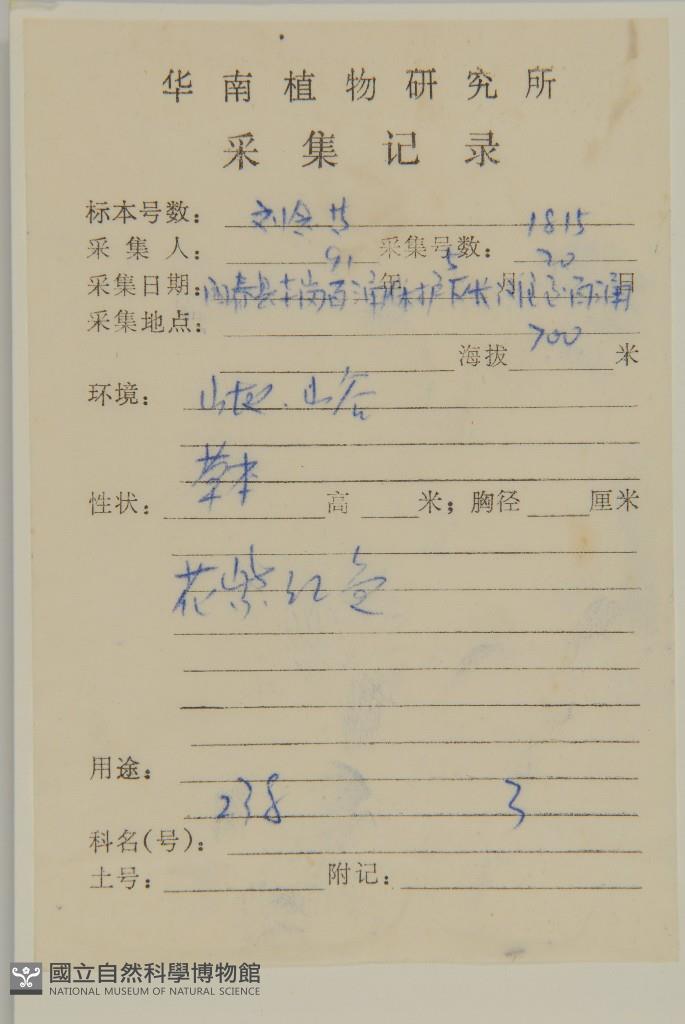 华南植物研究所
采集记录
标本号数: 刘念 1815
采集人: 91 采集号数: 20
采集日期: 年 5 月 日
阳春县
采集地点:
海拔 700 米
环境: 山地.山谷
草本
性状: 高 米; 胸径 厘米
花紫红色
用途:
238 3
科名(号):
土号: 附记:
國立自然科學博物館
NATIONAL MUSEUM OF NATURAL SCIENCE